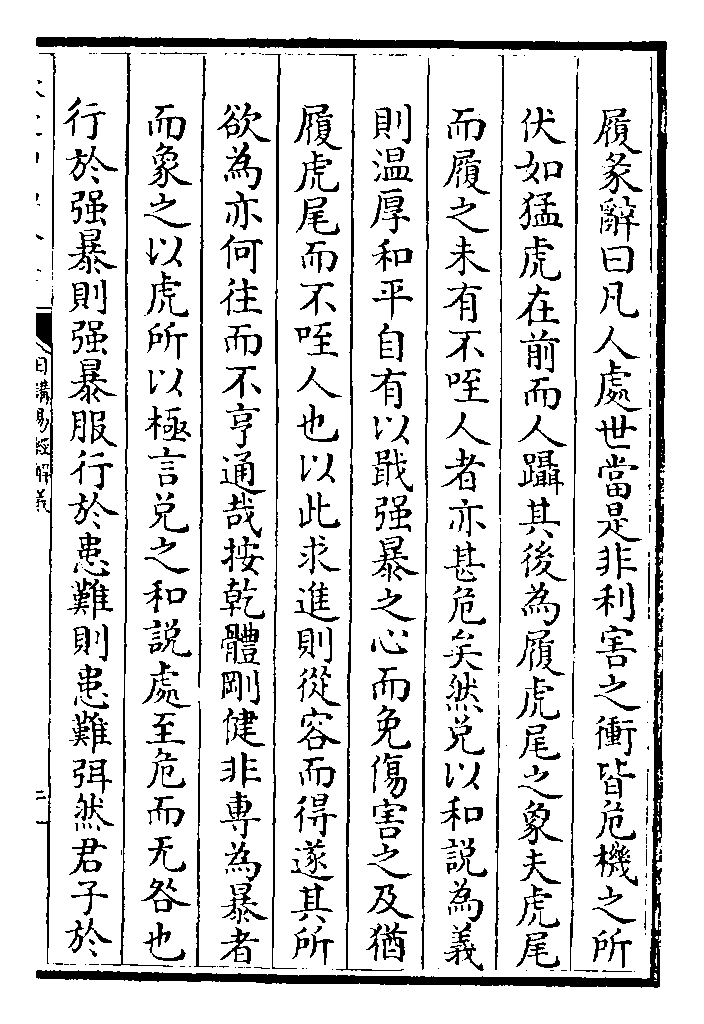 履彖辭曰凡人處世當是非利害之衝皆危機之所
伏如猛虎在前而人躡其後為履虎尾之象夫虎尾
而履之未有不咥人者亦甚危矣然兌以和說為義
則温厚和平自有以戢强暴之心而免傷害之及猶
履虎尾而不咥人也以此求進則從容而得遂其所
欲為亦何往而不亨通哉按乾體剛健非專為暴者
而象之以虎所以極言兌之和說處至危而无咎也
行於强暴則强暴服行於患難則患難弭然君子於
日講易經解義